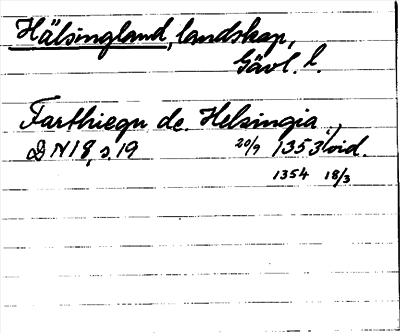 Hälsingland, landskap,
Gävl. l.
Farthiegn de Helsingia,
DN 18, s. 19 20/9 1353 vid.
1354 18/3